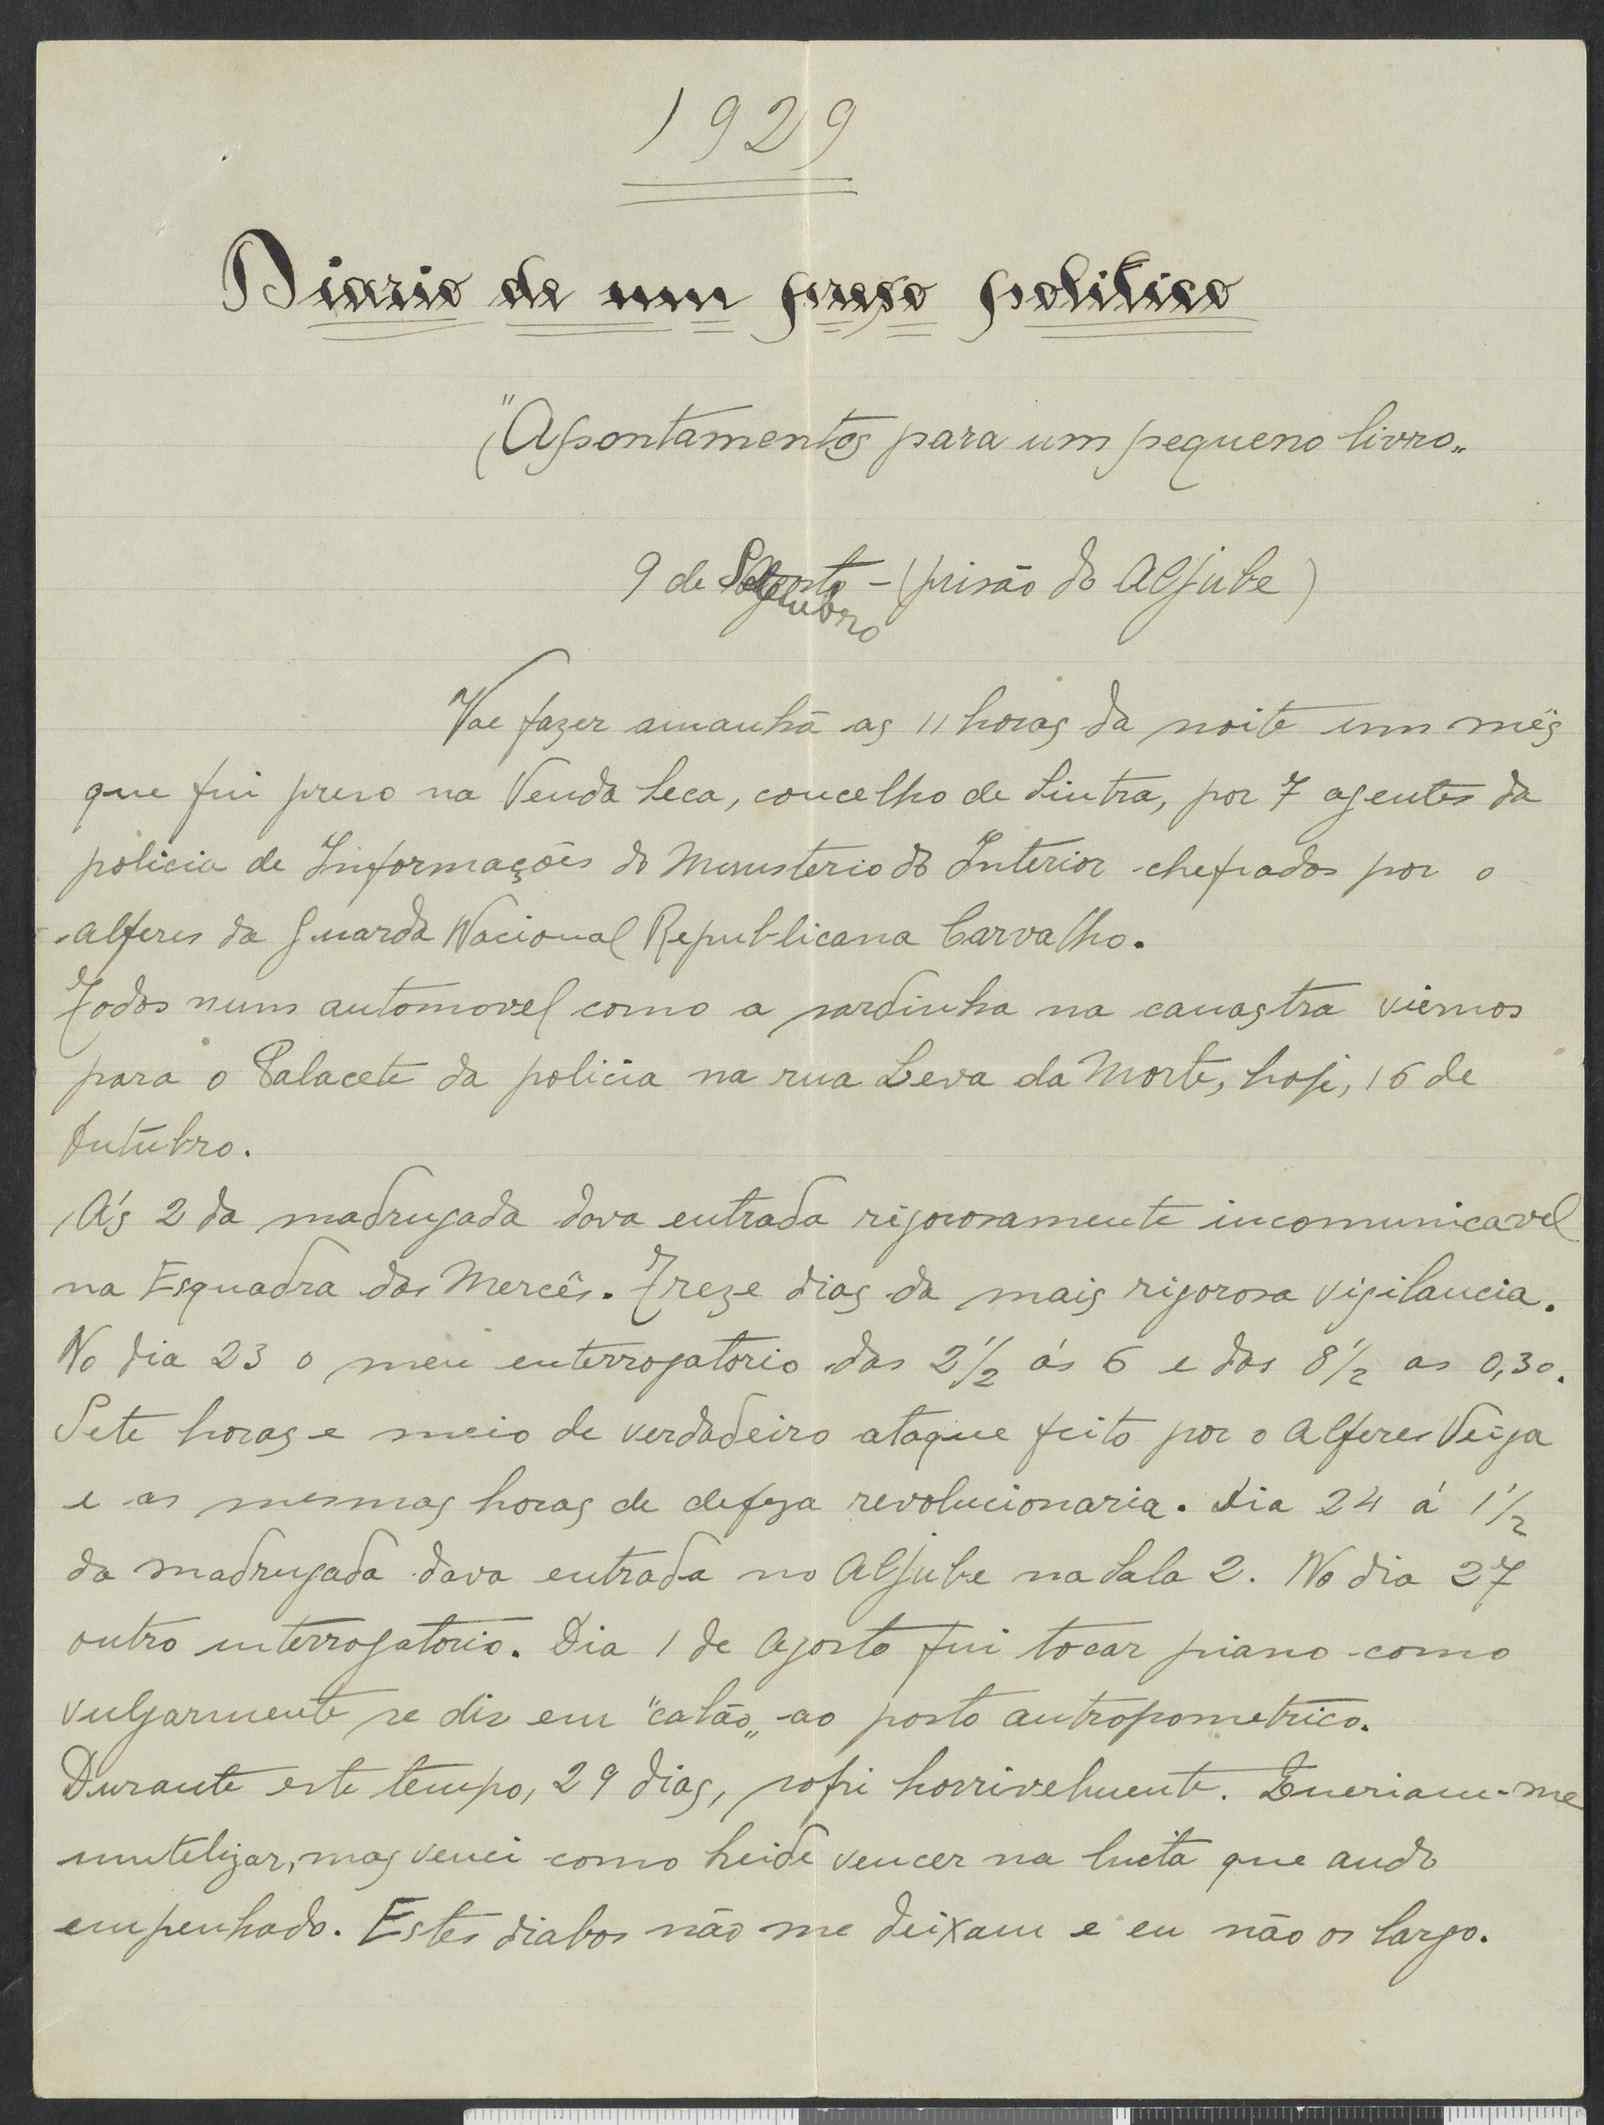 1929
Diario de um preso politico
"Apontamentos para um pequeno livro„
9 de Setembro - (prisão do Aljube)
Vae fazer amanhã as 11 horas da noite um mês
que fui preso na Venda Seca, concelho de Sintra, por 7 agentes da
policia de Informações do Ministerio do Interior chefiados por o
alferes da Guarda Nacional Republicana Carvalho.
Todos num automovel como a sardinha na canastra viemos
para o Palacete da policia na rua Leva da Morte, hoje, 16 de
Outubro.
Ás 2 da madrugada dava entrada rigorosamente incomunicavel
na Esquadra das Mercês. Treze dias da mais rigorosa vigilancia.
No dia 23 o meu enterrogatorio das 2 1/2 ás 6 e das 8 1/2 as 0,30.
Sete horas e meio de verdadeiro ataque feito por o Alferes Veiga
e as mesmas horas de defeza revolucionaria. Dia 24 á 1 1/2
da madrugada dava entrada no Aljube na Sala 2. No dia 27
outro interrogatorio. Dia 1 de Agosto fui tocar piano como
vulgarmente se diz em "calão„ ao posto antropometrico.
Durante este tempo, 29 dias, sofri horrivelmente. Queriam-me
inutelizar, mas venci como heide vencer na lucta que ando
empenhado. Estes diabos não me deixam e eu não os largo.